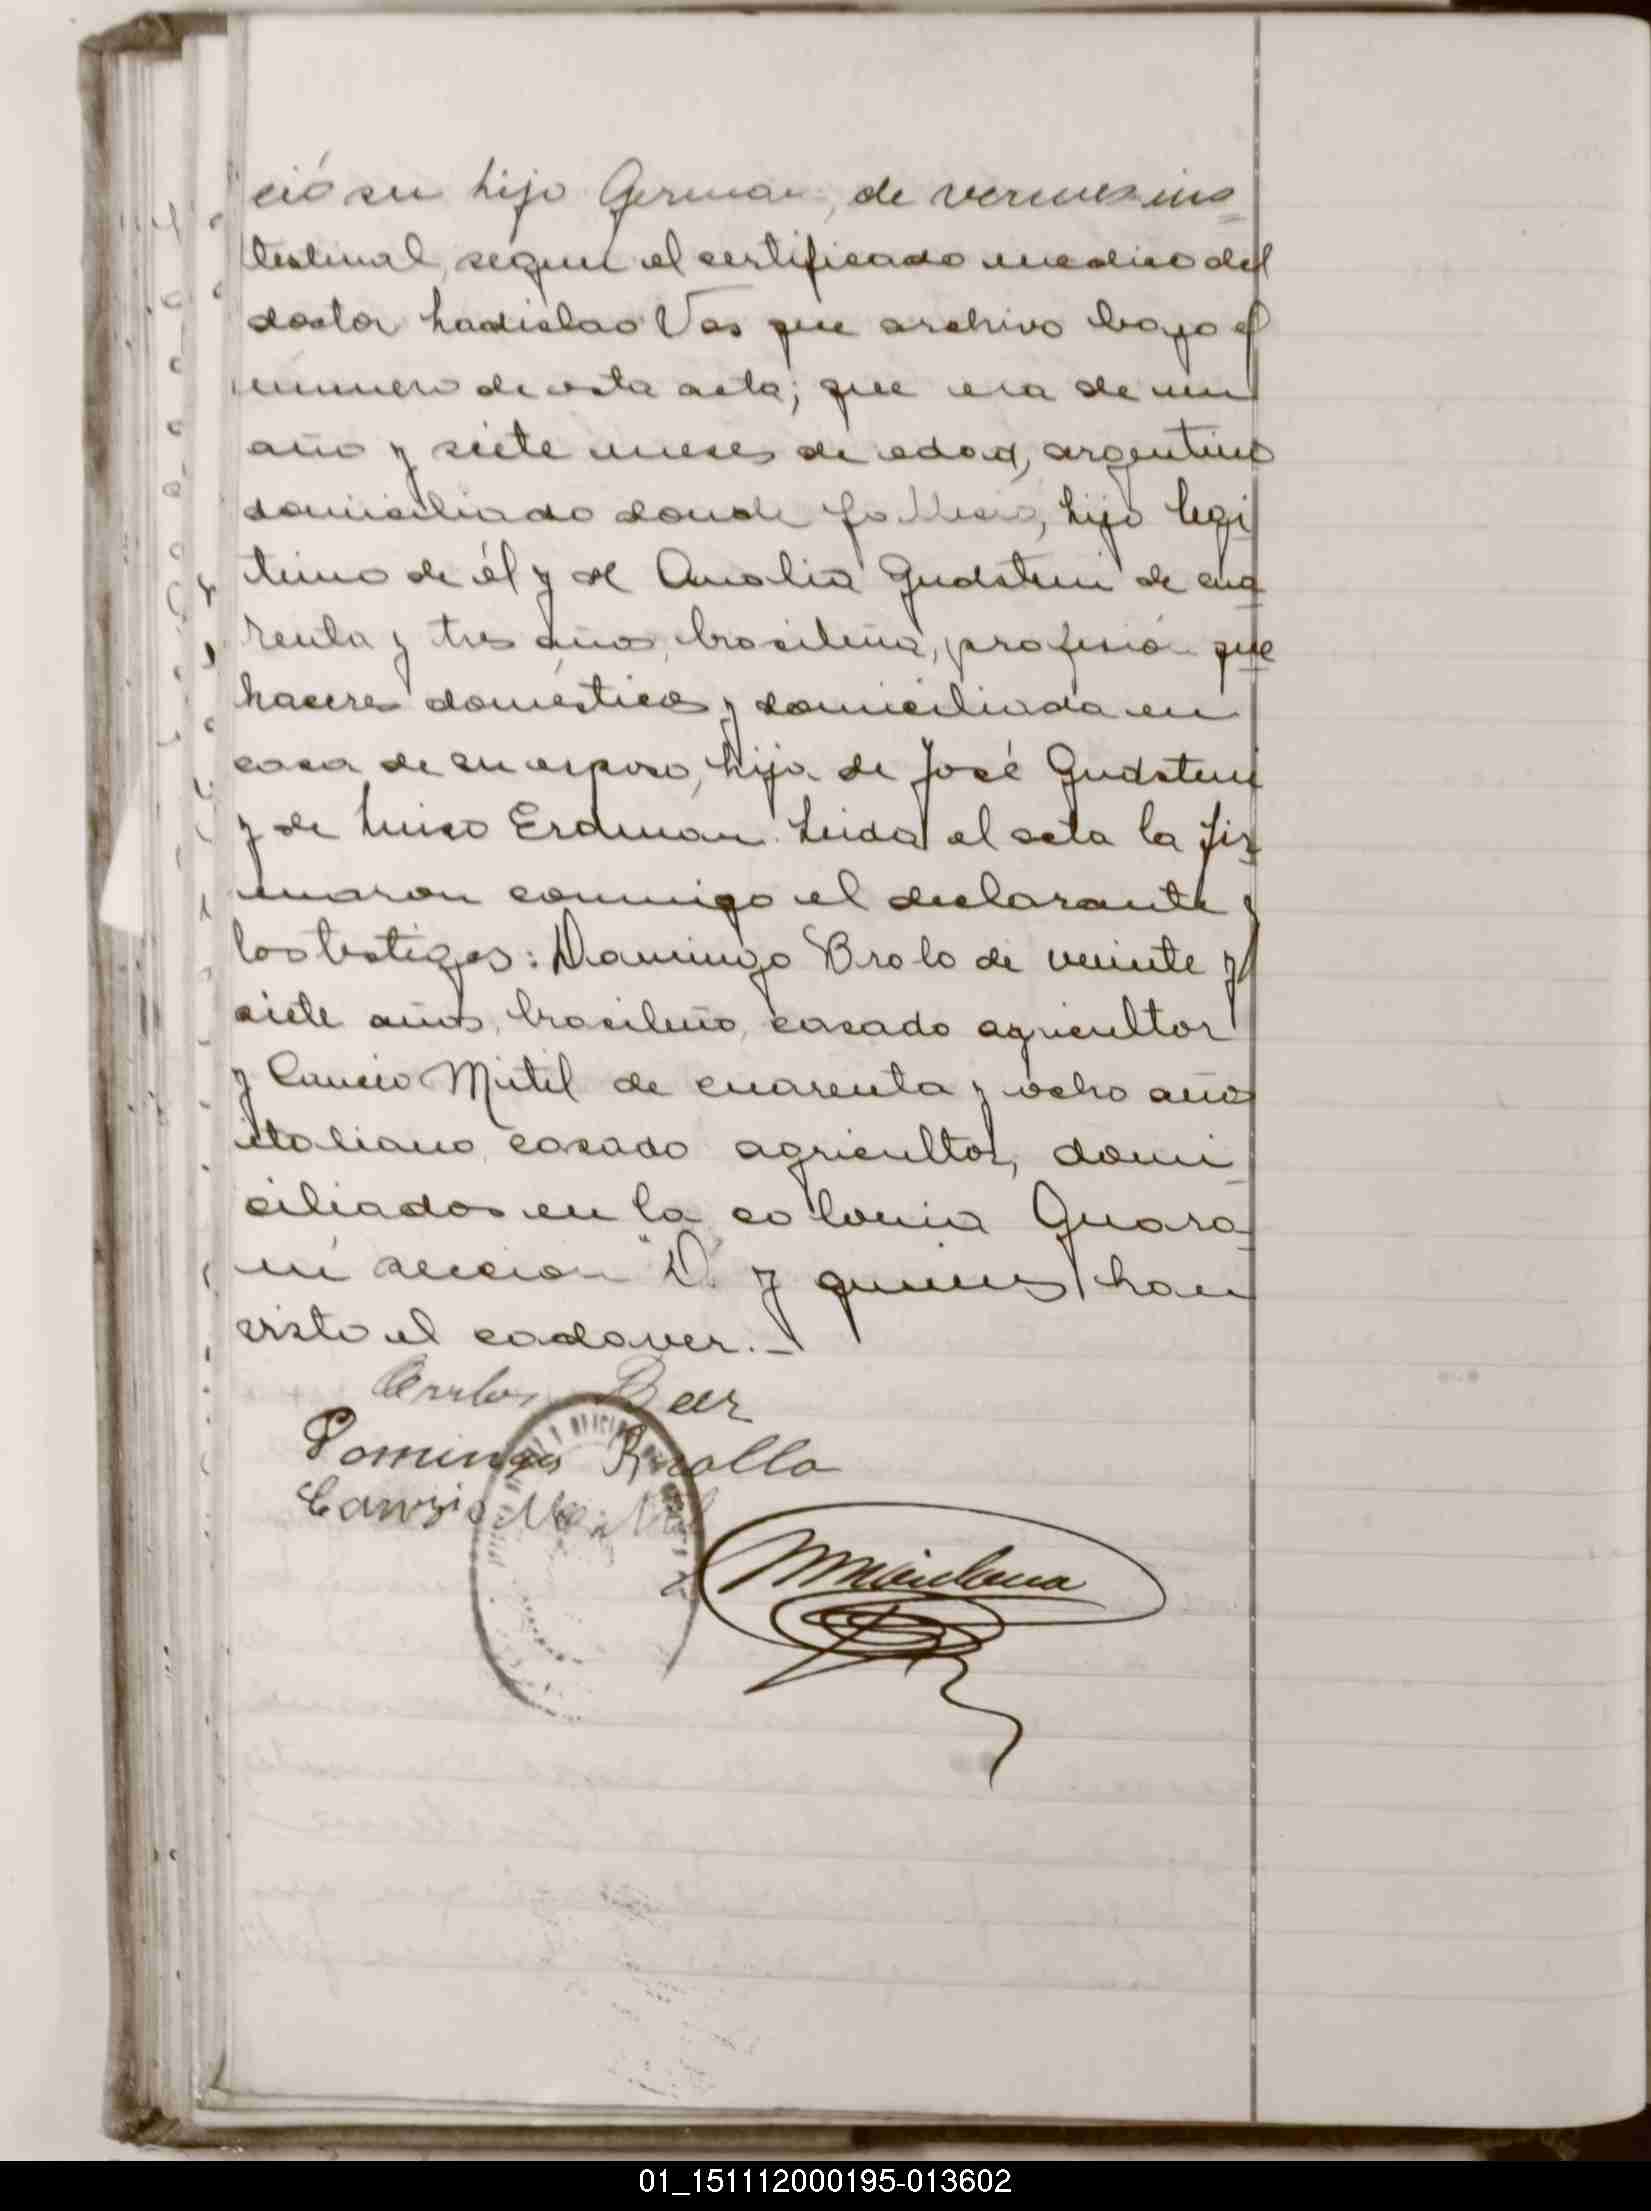 ció su hijo German, de vermes ins
testinal, segun el certificado medico del
doctor Ladislao Vas que archivo bajo el
número de esta acta; que era de un
año y siete meses de edad, argentino
domiciliado donde fallecio, hijo legi
timo de él y de Amalia Gudstein de cua
renta y tres años, brasileña, profesión que
haceres domésticos y domiciliada en
casa de su esposo, hija de José Gudstein
y de Luisa Erdman. Leida el acta la fir
maron conmigo el declarante y
los testigos: Domingo Brolo de veinte y
siete años, brasileño, casado agricultor
y Cancio Mitil de cuarenta y ocho años
italiano, casado agricultor, domi
ciliados en la colonia Guara
ní sección "D" y quienes han
visto el cadaver.-
Carlos Beer
Domingos Brollo
Canzio
01_151112000195-013602